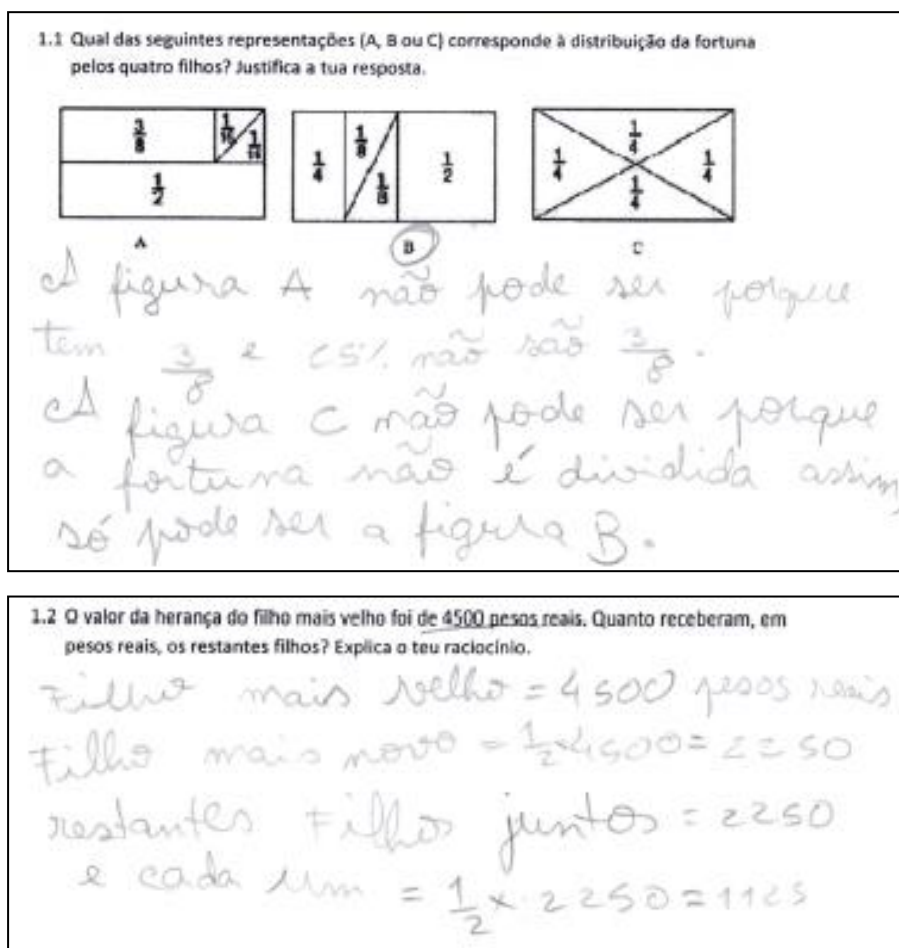 1.1 Qual das seguintes representações (A, B ou C) corresponde à distribuição da fortuna
pelos quatro filhos? Justifica a tua resposta.
3/8 1/16 1/16 1/2
1/4 1/8 1/8 1/2
1/4 1/4 1/4 1/4
A B C
A figura A não pode ser porque
tem 3/8 e 25% não são 3/8.
A figura C não pode ser porque
a fortuna não é dividida assim
só pode ser a figura B.
1.2 O valor da herança do filho mais velho foi de 4500 pesos reais. Quanto receberam, em
pesos reais, os restantes filhos? Explica o teu raciocínio.
Filho mais velho = 4500 pesos reais
Filho mais novo = 1/2 × 4500 = 2250
restantes Filhos juntos = 2250
e cada um = 1/2 × 2250 = 1125